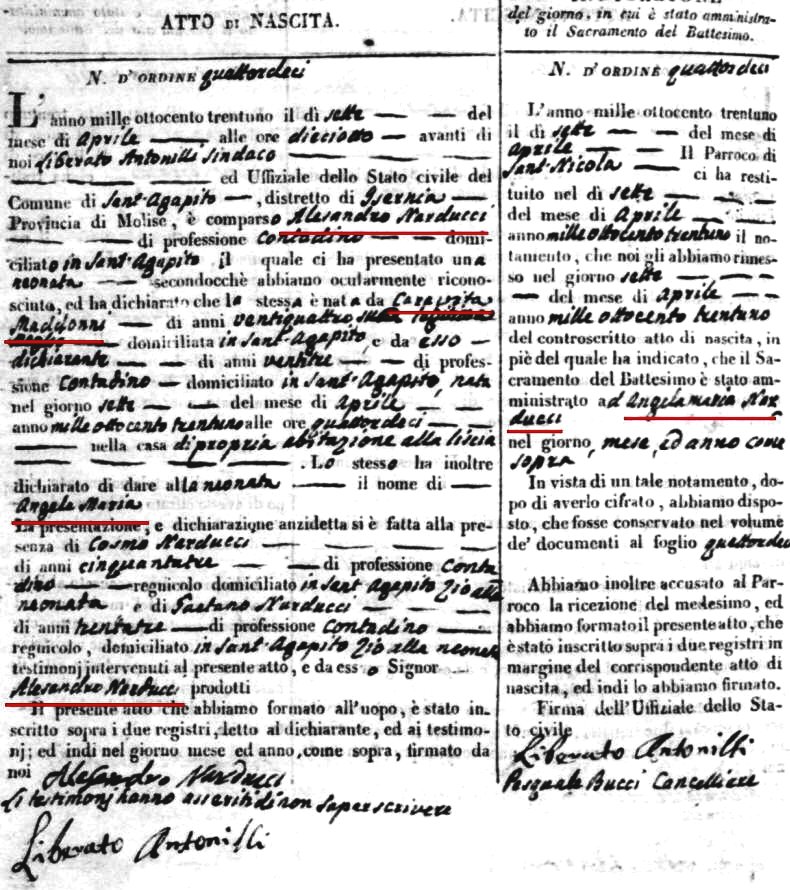 ATTO DI NASCITA.
N. D'ORDINE quattordeci
L'anno mille ottocento trentuno il dì sette del
mese di Aprile alle ore dieciotto avanti di
noi Liberato Antonilli Sindaco
ed Uffiziale dello Stato civile del
Comune di Sant'Agapito, distretto di Isernia
Provincia di Molise, è comparso Alesandro Narducci
di professione Contadino domi-
ciliato in Sant'Agapito, il quale ci ha presentato una
neonata secondocchè abbiamo ocularmente ricono-
sciuto, ed ha dichiarato che la stessa è nata da
di anni ventiquattro
domiciliata in Sant'Agapito, e da esso
dichiarante di anni ventitre di profes-
sione Contadino domiciliato in Sant'Agapito, nata
nel giorno sette del mese di Aprile
anno mille ottocento trentuno alle ore quattordeci
nella casa di propria abitazione alla
. Lo stesso ha inoltre
dichiarato di dare alla neonata il nome di
Angela Maria
La presentazione, e dichiarazione anzidetta si è fatta alla pre-
senza di Cosmo Narducci
di anni cinquantatre di professione Conta
dino regnicolo domiciliato in Sant Agapito Zio alla
neonata e di Gaetano Narducci
di anni trentatre di professione Contadino
regnicolo, domiciliato in Sant'Agapito Zio alla neonata
testimonj intervenuti al presente atto, e da esso Signor
Alesandro Narducci prodotti
Il presente atto che abbiamo formato all'uopo, è stato in-
scritto sopra i due registri, letto al dichiarante, ed ai testimo-
nj; ed indi nel giorno mese ed anno, come sopra, firmato da
noi Alesandro Narducci
li testimonj hanno asserito di non saper scrivere
Liberato Antonilli
del giorno, in cui è stato amministra-
to il Sacramento del Battesimo.
N. D'ORDINE quattordeci
L'anno mille ottocento trentuno
il dì sette del mese di
Aprile Il Parroco di
Sant Nicola ci ha resti-
tuito nel dì sette
del mese di Aprile
anno mille ottocento trentuno il no-
tamento, che noi gli abbiamo rimes-
so nel giorno sette
del mese di Aprile
anno mille ottocento trentuno
del controscritto atto di nascita, in
piè del quale ha indicato, che il Sa-
cramento del Battesimo è stato am-
ministrato ad Angelamaria Nar
ducci
nel giorno, mese, ed anno come
sopra
In vista di un tale notamento, do-
po di averlo cifrato, abbiamo dispo-
sto, che fosse conservato nel volume
de' documenti al foglio quattordeci
Abbiamo inoltre accusato al Par-
roco la ricezione del medesimo, ed
abbiamo formato il presente atto, che
è stato inscritto sopra i due registri in
margine del corrispondente atto di
nascita, ed indi lo abbiamo firmato.
Firma dell'Uffiziale dello Sta-
to civile
Liberato Antonilli
Pasquale Bucci Cancelliere